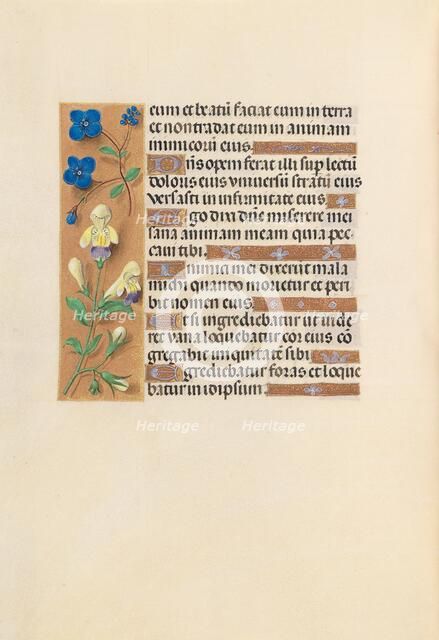 eum et beatū faciat eum in terra
et non tradat eum in animam
inimicorū eius.
Dn̄s opem ferat illi sup lectū
doloris eius vniuersū stratū eius
versasti in infirmitate eius.
Ego dixi dn̄e miserere mei
sana animam meam quia pec
caui tibi.
Inimici mei dixerūt mala
michi quando morietur et peri
bit nomen eius.
Et si ingrediebatur ut vide
ret vana loquebatur cor eius cō
gregabit iniquitatē sibi.
Egrediebatur foras et loque
batur in idipsum.
Heritage
Heritage
Heritage
Heritage
Heritage
Heritage